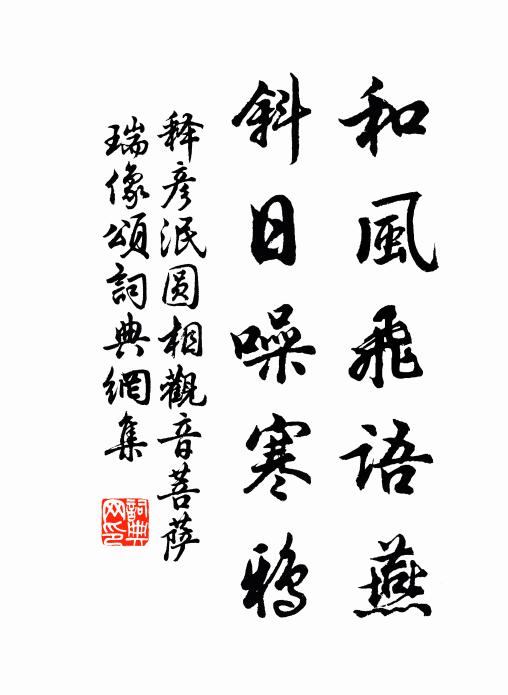 和風飛語燕
斜日噪寒鴉
释彦泯圆相觀音菩萨
瑞像頌詞典網集
詞典
网印